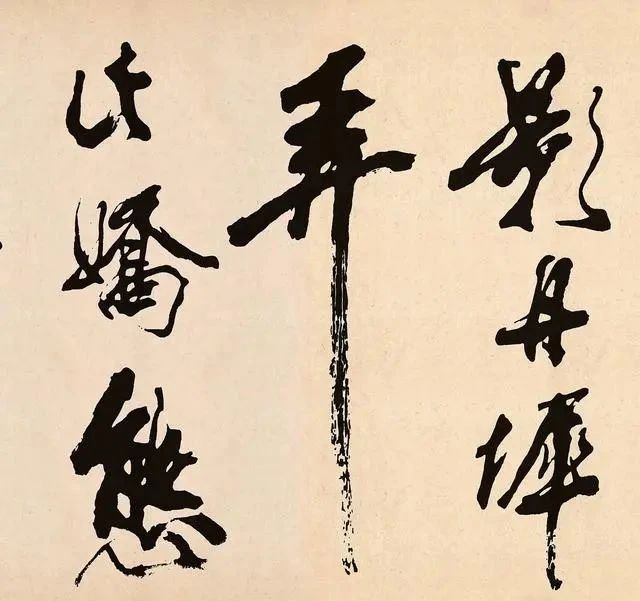 影丹墀
弄
此嬌態